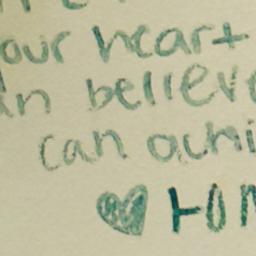 our heart
an believe
can achi
♥ TOM